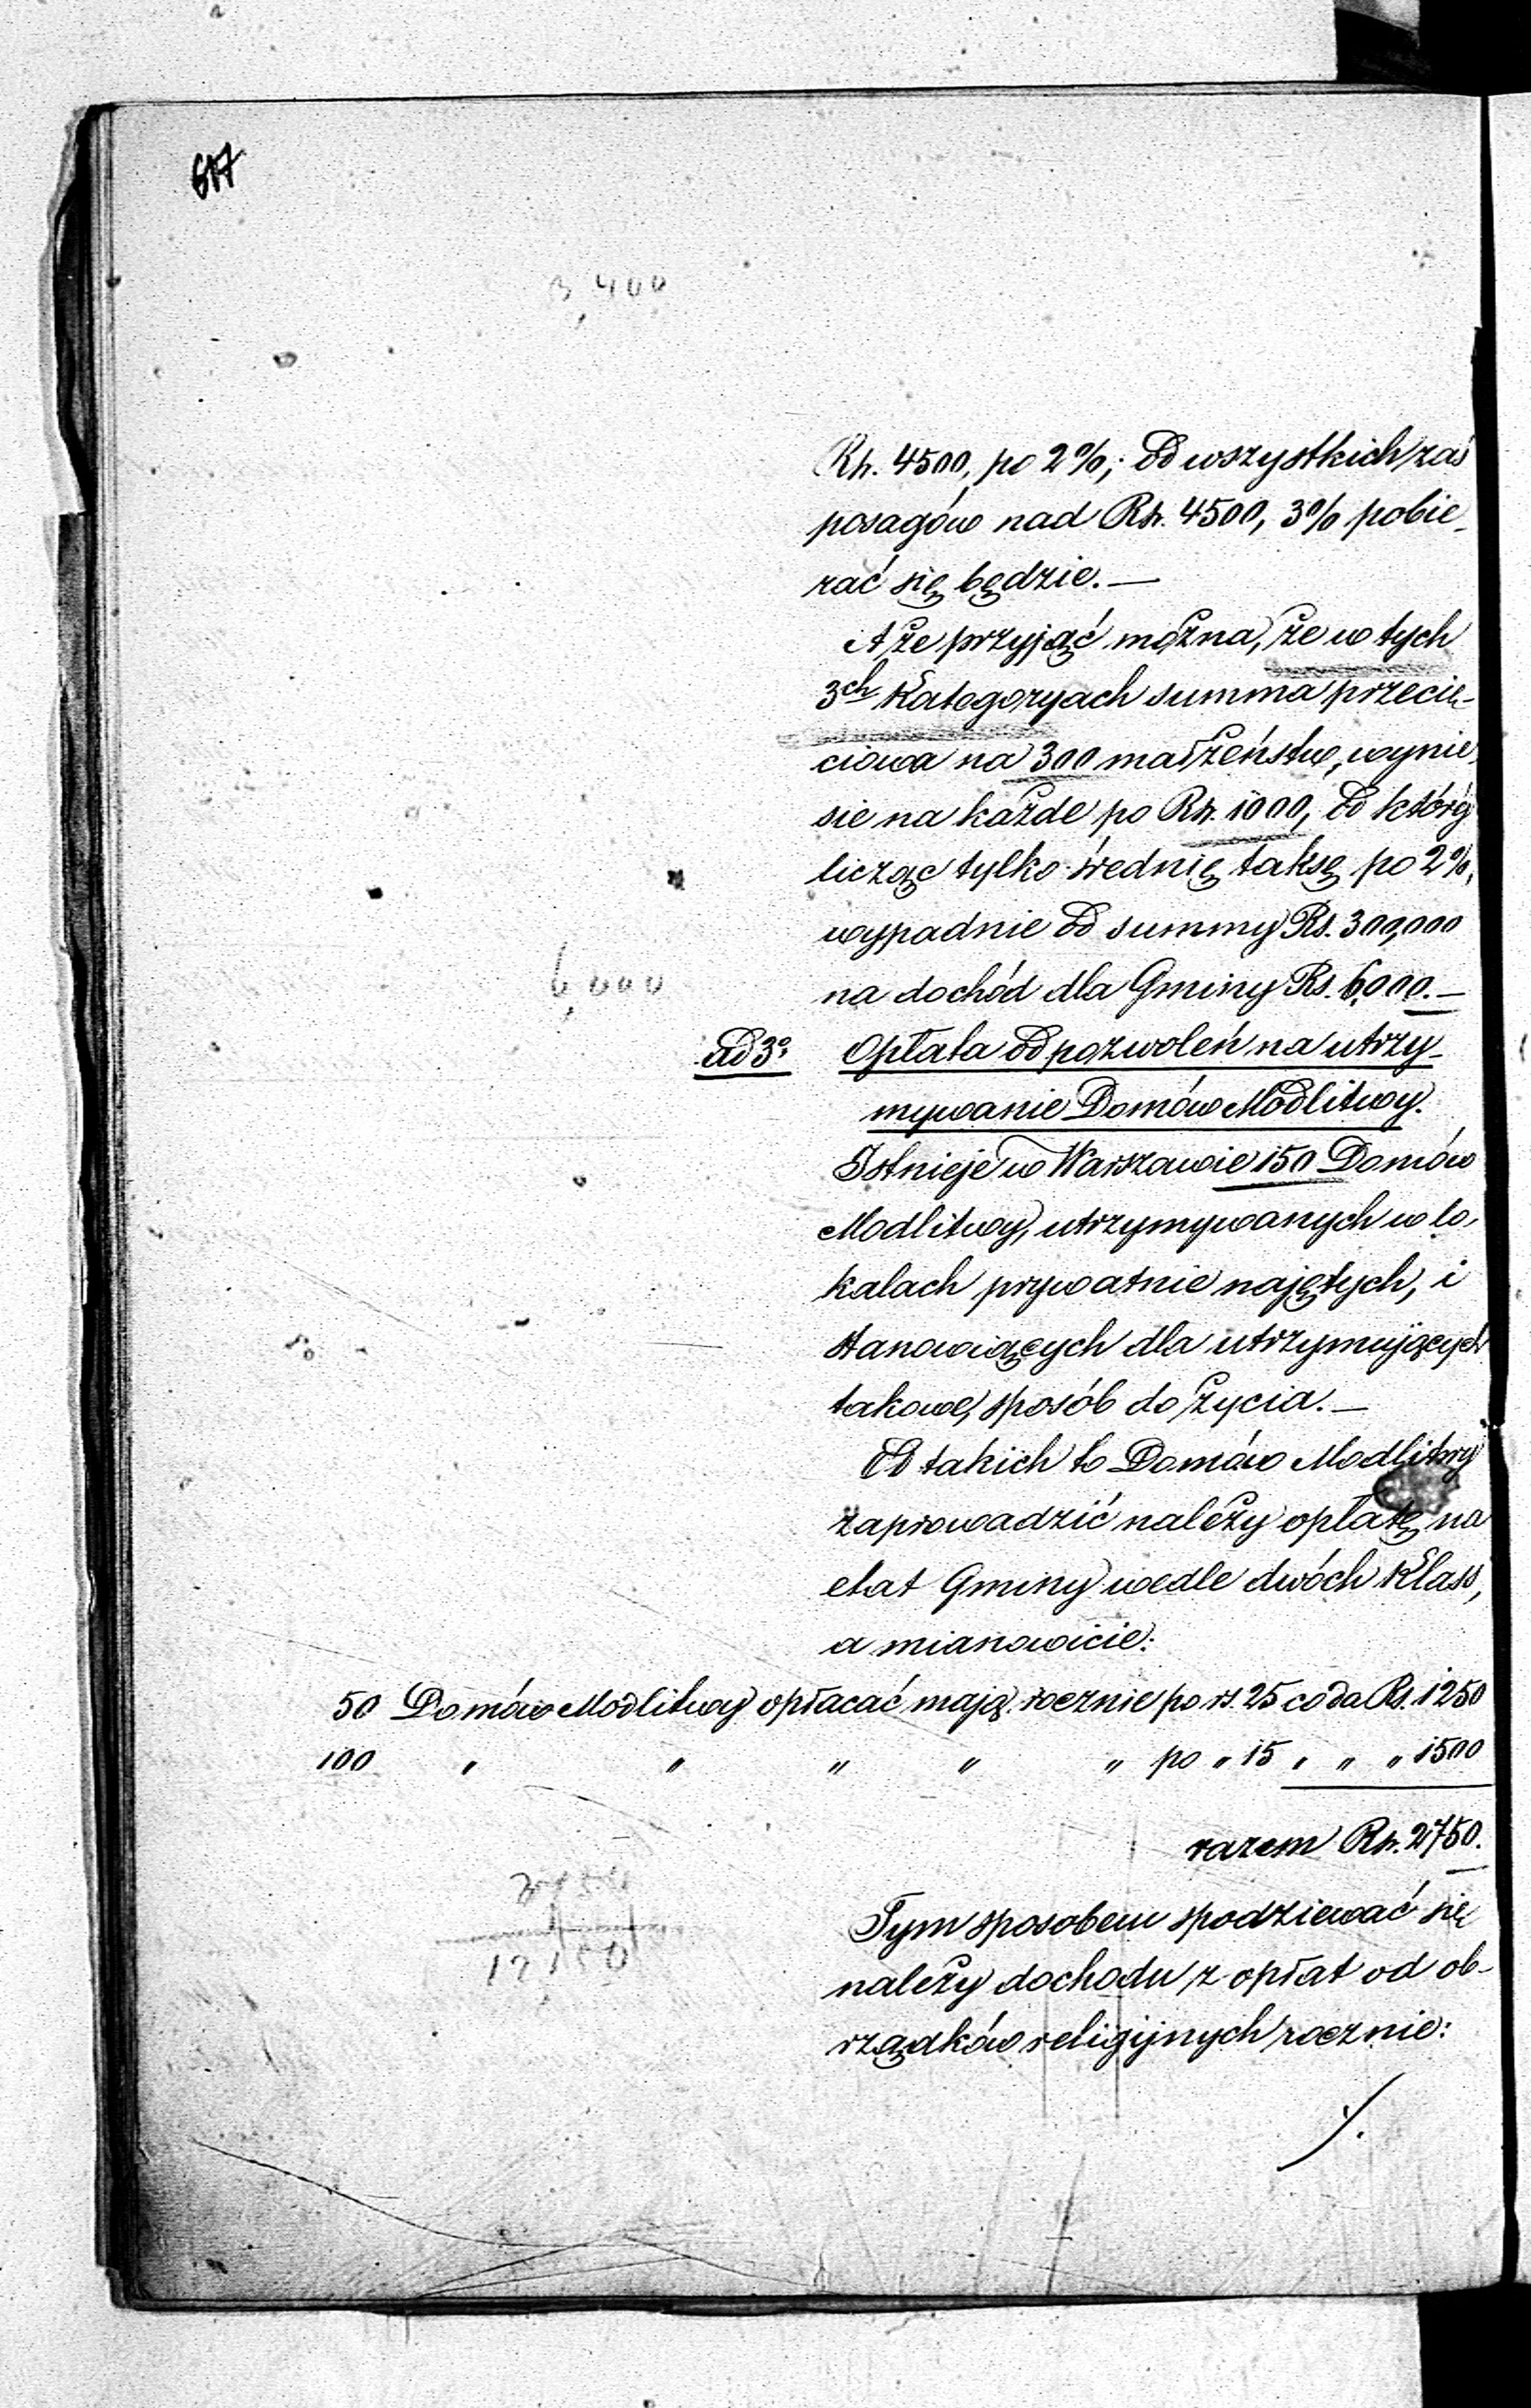 617
3,400
Rs. 4500, po 2%; Od wszystkich zaś
posagów nad Rs. 4500, 3% pobie-
rać się będzie. —
A że przyjąć można, że w tych
3ch Kategoryach summa przecię-
ciowa na 300 małżeństw, wynie-
sie na każde po Rs. 1000, Od któréj
licząc tylko średnię taksę po 2%,
wypadnie Od summy Rs. 300,000
6,000
na dochód dla Gminy Rs. 6,000. —
ad 3o, Opłata Od pozwoleń na utrzy-
mywanie Domów Modlitwy.
Istnieje w Warszawie 150 Domów
Modlitwy, utrzymywanych w lo-
kalach prywatnie najętych, i
stanowiących dla utrzymujących
takowe, sposób do życia. —
Od takich to Domów Modlitwy
zaprowadzić należy opłatę na
etat Gminy wedle dwóch Klass,
a mianowicie:
50 Domów Modlitwy opłacać mają rocznie po rs. 25 co da Rs. 1250
100 " " " " " po " 15 " " " 1500
razem Rs. 2750.
12150
Tym sposobem spodziewać się
należy dochodu z opłat od ob-
rządków religijnych rocznie:
./.